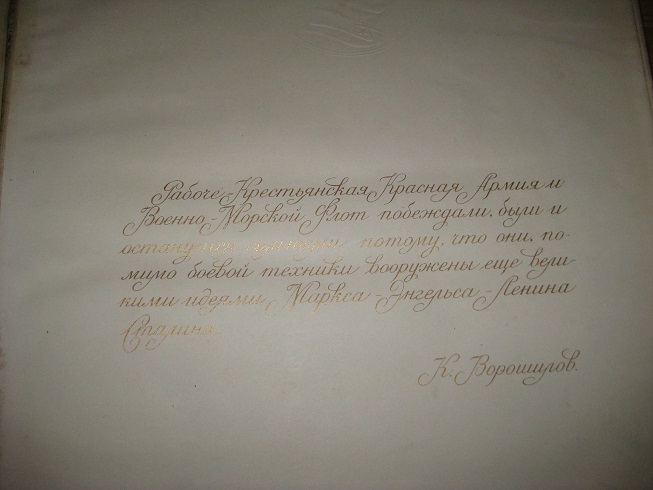 Рабоче-Крестьянская Красная Армия и
Военно-Морской Флот побеждали, были и
останутся потому, что они, по-
мимо боевой техники вооружены еще вели-
кими идеями Маркса-Энгельса-Ленина
Сталина.
К. Ворошилов.